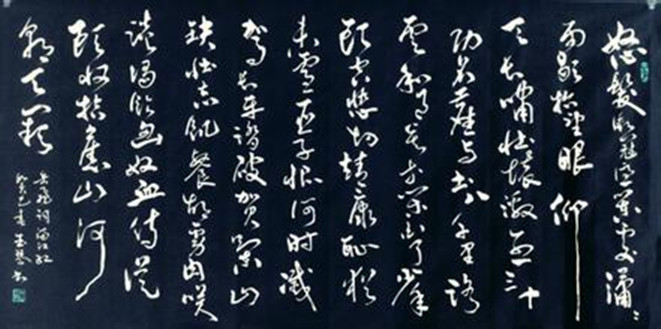 怒髮衝冠凭闌處瀟瀟
雨歇抬望眼仰
天長嘯壯懷激烈三十
功名塵与土八千里路
雲和月莫等閑白了少年
頭空悲切靖康恥猶
未雪臣子恨何時滅
駕長車踏破賀蘭山
缺壯志飢餐胡虜肉笑
談渴飲匈奴血待從
頭收拾舊山河
朝天闕
岳飛詞滿江紅
癸巳年